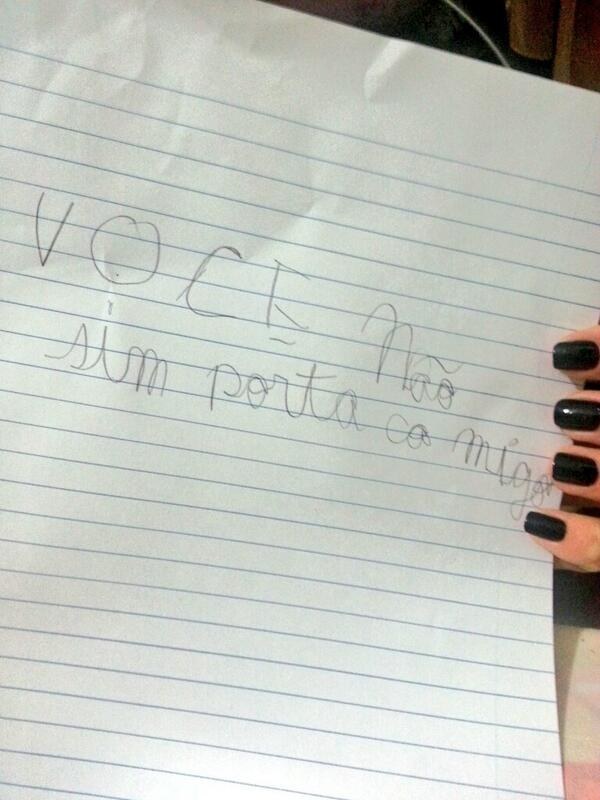 VOCE Não
sim porta co migo